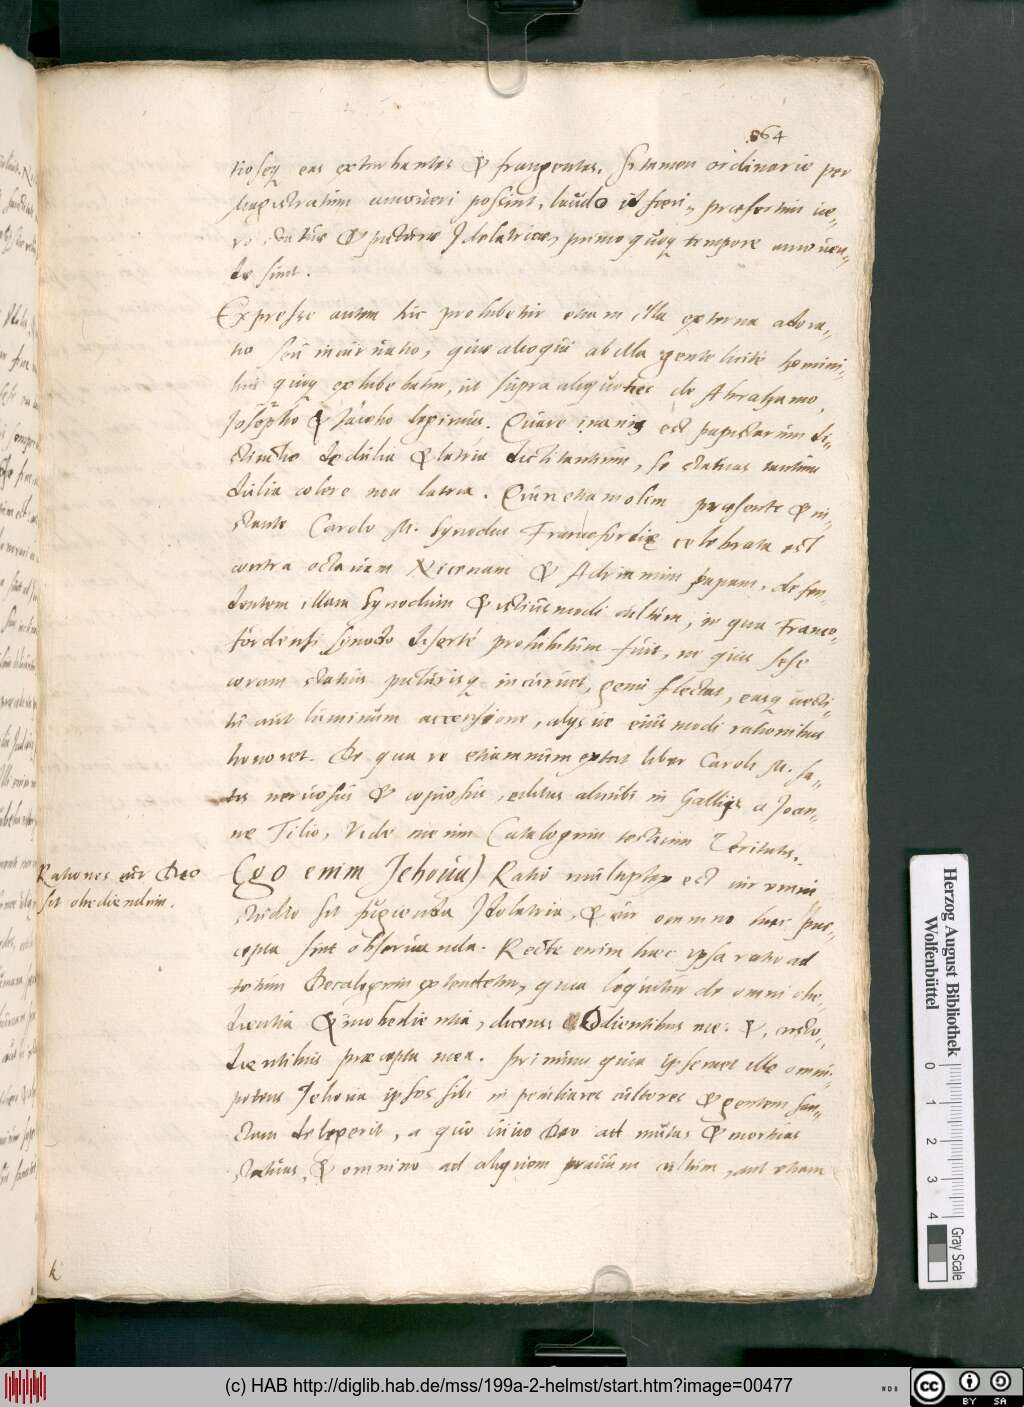 864
tiosq́ eas exturbantes & frangentes. Si tamen ordinarie per
Magistratum amoueri possint, laudo ut fieri, praesertim ue-
ro statuae & picturae Idolatricae, primo quoq tempore amouen-
dae sint.
Expresse autem hic prohibetur etiam illa externa adora-
tio seu incuruatio, quae alioqui ab illa gente luité homini-
bus quoq exhibebatur, ut supra aliquoties de Abrahamo,
Iosepho & Iacobo legimus. Quare inanis est papistarum di-
stinctio de dulia & latria dictitantium, se statuas tantum
dulia colere non latria. Quin etiam olim praesente & in-
stante Carolo M. Synodus Francofordiae celebrata est
contra octauam Nicenam & Adrianum papam, defen-
dentem illam Synodum & istiusmodi cultum, in qua Franco-
fordensi synodo diserté prohibitum fuit, ne quis sese
coram statuis picturisq incuruet, genu flectat, easq uesti-
tu aut luminum accensione, alijs ue eiusmodi rationibus
honoret. De qua re etiamnum extat liber Caroli M. sa-
tis neruosus & copiosus, editus alicubi in Gallijs a Ioan-
ne Tilio, Vide meum Catalogum testium Veritatis.
Rationes cur Deo
sit obediendum.
Ego enim Iehoua) Ratio multiplex est cur omni
studio sit fugienda Idolatria, & cur omnino haec prae-
cepta sint obseruanda. Recte enim haec ipsa ratio ad
totum Decalogum extendetur, quia loquitur de omni obe-
dientia & inobedientia, dicens: Odientibus me: &, custo-
dientibus praecepta mea. Primum quia ipsemet ille omni-
potens Iehoua ipsos sibi in peculiares cultores & gentem san-
ctam delegerit, a quo uiuo Deo ad mutas & mortuas
statuas, & omnino ad aliquem prauum cultum, aut etiam
k
Herzog August Bibliothek
Wolfenbüttel
0 1 2 3 4
Gray Scale
(c) HAB http://diglib.hab.de/mss/199a-2-helmst/start.htm?image=00477
cc BY SA